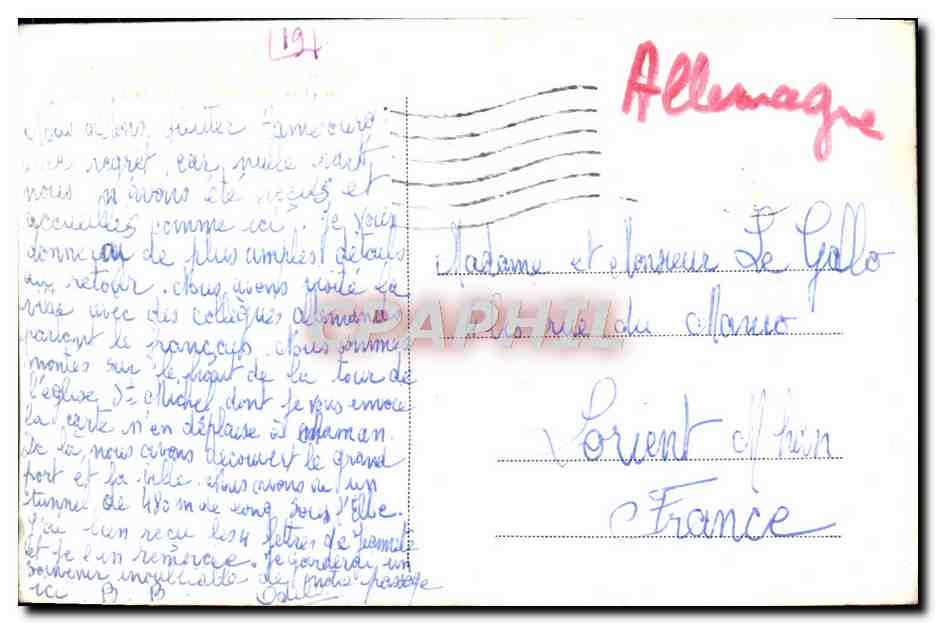 19
Allemagne
Nous allons quitter Hambourg
regret, car nulle part
nous n'avons été reçus et
accueillis comme ici. Je vous
donnerai de plus amples détails
au retour. Nous avons visité la
avec des collègues allemands
parlant le français. Nous sommes
montés sur le haut de la tour de
l'église St Michel dont je vous envoie
la carte n'en déplaise à maman.
De là, nous avons découvert le grand
port et la ville. Nous avons vu un
tunnel de 480 m de long sous l'Elbe.
J'ai bien reçu les 4 lettres de
et je l'en remercie. Je garderai un
souvenir inoubliable de notre passage
ici B. B.
Madame et Monsieur Le Gallo
rue du Manio
Lorient Mhan
France
CPAPHIL